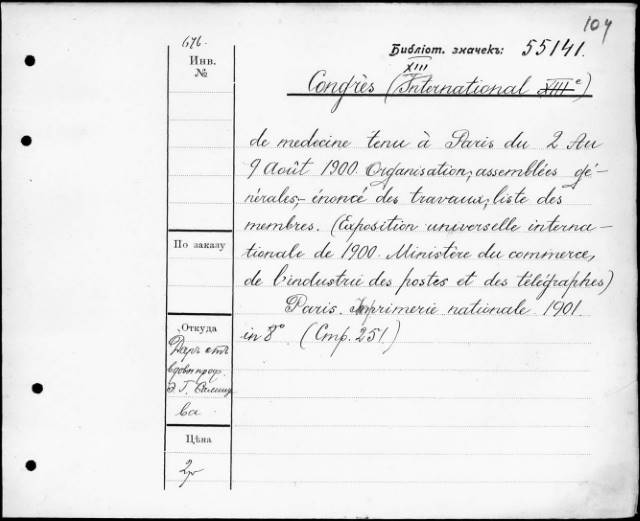 104
676.
Инв.
№
Библіот. значекъ: 55141.
XIII
Congrès (International XIIIe)
de medecine tenu à Paris du 2 Au
9 Août 1900. Organisation, assemblées gé-
nérales,- énoncé des travaux, liste des
membres. (Exposition universelle interna-
tionale de 1900. Ministère du commerce,
de l'industrie des postes et des télégraphes)
Paris. Imprimerie nationale 1901.
in 8° (Стр. 251.)
По заказу
Откуда
Даръ отъ
вдовы проф.
Э. Г.
ва
Цѣна
2р